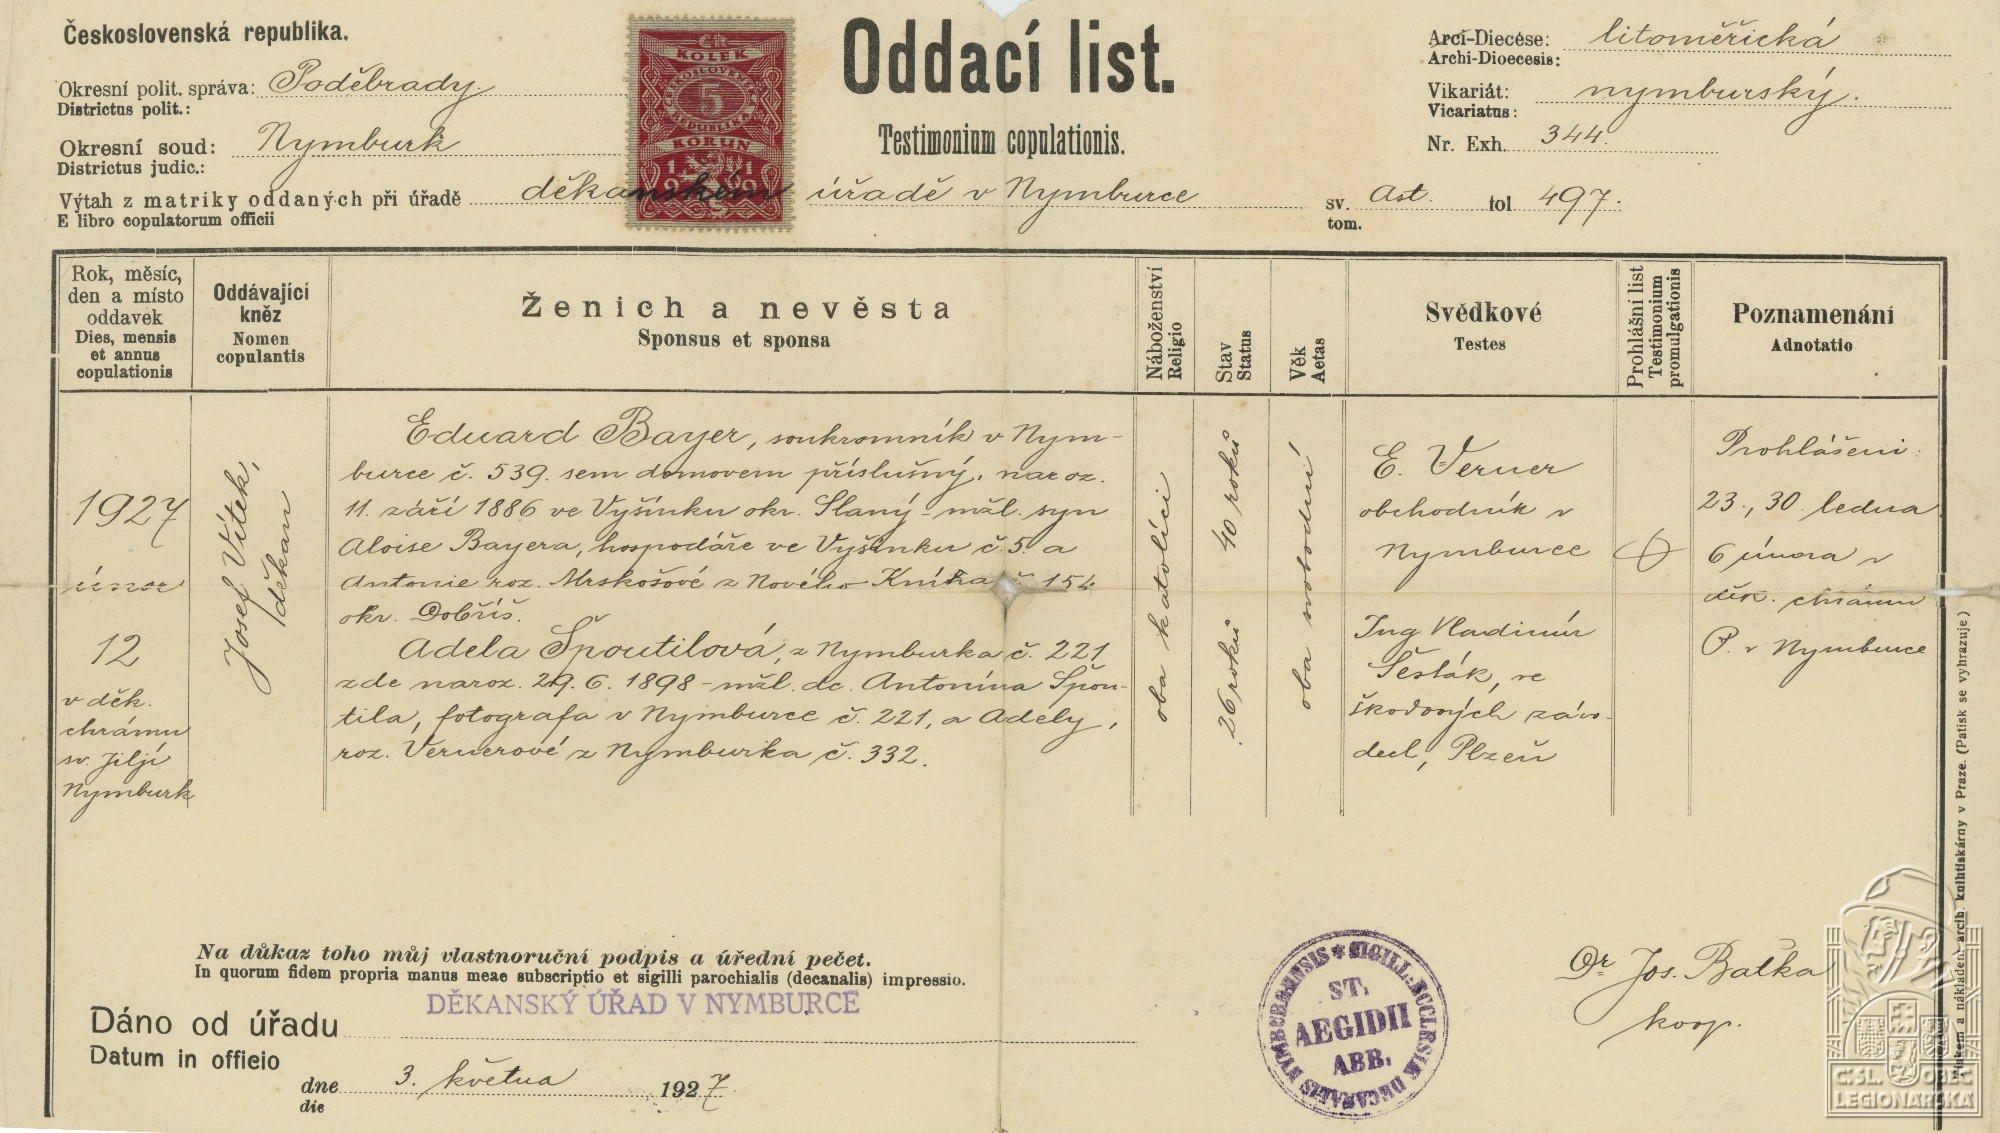 Československá republika.
Okresní polit. správa: Poděbrady
Districtus polit.:
Okresní soud: Nymburk
Districtus judic.:
Výtah z matriky oddaných při úřadě děkanském úřadě v Nymburce
E libro copulatorum officii
KOLEK
ČESKOSLOVENSKÁ
5
REPUBLIKA
KORUN
1919
Oddací list.
Testimonium copulationis.
Arci-Diecése: litoměřická
Archi-Dioecesis:
Vikariát: nymburský.
Vicariatus:
Nr. Exh. 344.
sv. Ast. fol 497.
tom.
Rok, měsíc,
den a místo
oddavek
Dies, mensis
et annus
copulationis
Oddávající
kněz
Nomen
copulantis
Ženich a nevěsta
Sponsus et sponsa
Náboženství
Religio
Stav
Status
Věk
Aetas
Svědkové
Testes
Prohlášní list
Testimonium
promulgationis
Poznamenání
Adnotatio
1927
únor
12
v děk.
chrámu
sv. Jiljí
Nymburk
Josef Vítek,
děkan
Eduard Bayer, soukromník v Nym-
burce č. 539. sem domovem příslušný, naroz.
11. září 1886 ve Vyšínku okr. Slaný - mžl. syn
Aloise Bayera, hospodáře ve Vyšínku č. 5. a
Antonie roz. Mrskošové z Nového Knína č 154
okr. Dobříš.
Adela Špoutilová, z Nymburka č. 221
zde naroz. 29. 6. 1898 - mžl. dc. Antonína Špou-
tila, fotografa v Nymburce č. 221, a Adély,
roz. Vernerové z Nymburka č. 332.
oba katolíci
40 roků
26 roků
oba svobodní
E. Verner
obchodník v
Nymburce
Ing Vladimír
Šesták, ve
škodových závo-
dech, Plzeň
Prohlášení:
23., 30 ledna
6 února v
děk. chrámu
P. v Nymburce
Na důkaz toho můj vlastnoruční podpis a úřední pečet.
In quorum fidem propria manus meae subscriptio et sigilli parochialis (decanalis) impressio.
DĚKANSKÝ ÚŘAD V NYMBURCE
Dáno od úřadu
Datum in officio
dne 3. května 1927
die
SIGILL. ECCLESIÆ DECANALIS NYMBURGENSIS
ST.
AEGIDII
ABB.
Dr Jos. Batka
koop.
Tiskem a nákladem arcib. knihtiskárny v Praze. (Patisk se vyhrazuje)
ČSL. OBEC
LEGIONÁŘSKÁ